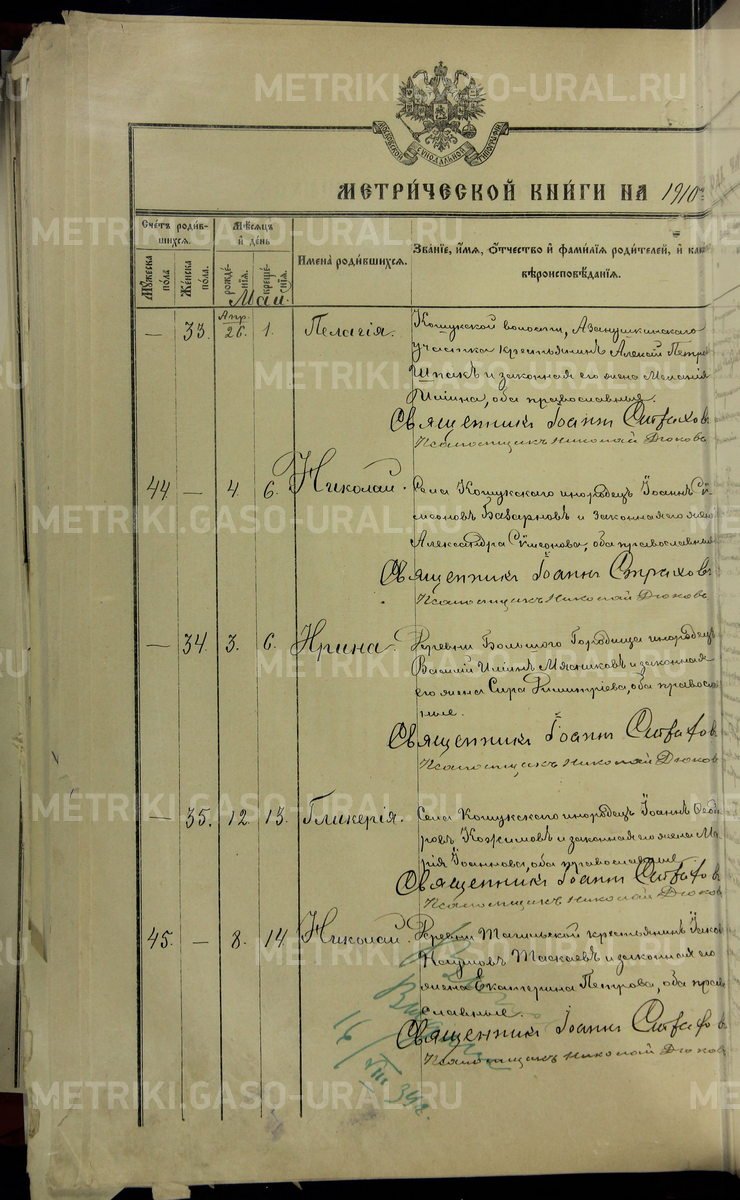 METRIKI.GASO-URAL.RU
МОСКОВСКОЙ СѴНОДАЛЬНОЙ ТИПОГРАФІИ
МЕТРИ́ЧЕСКОЙ КНИ́ГИ НА 1910
Счётъ роди́вшихся.
Му́жеска по́ла
Же́нска по́ла.
Мѣ́сяцъ и день
рожде́нія.
креще́нія.
Имена̀ роди́вшихся.
Зва́ніе, и́мя, о́тчество и фами́лія роди́телей, и как
вѣроисповѣ́данія.
Май.
— 33. Апр. 26. 1. Пелагія.
Кошукской волости, Азанушкинскаго
участка крестьянинъ Алексій Петро
Шпакъ и законная его жена Меланія
Иліина, оба православные.
Священникъ Іоаннъ Страхов
Псаломщикъ Николай Дюковъ
44 — 4. 6. Николай.
Села Кошукскаго инородецъ Іоаннъ Сѵ
меоновъ Базарновъ и законная его жена
Александра Сѵмеонова, оба православные
Священникъ Іоаннъ Страхов
Псаломщикъ Николай Дюковъ
— 34. 3. 6. Ирина.
Деревни Большого Городища инородецъ
Василій Иліинъ Мясниковъ и законная
его жена Сира Димитріева, оба правосла
ные.
Священникъ Іоаннъ Страхов
Псаломщикъ Николай Дюков
— 35. 12. 13. Гликерія.
Села Кошукскаго инородецъ Іоаннъ Ѳеодо
ровъ Кожимовъ и законная его жена Ма
рія Іоаннова, оба православные
Священникъ Іоаннъ Страхов
Псаломщикъ Николай Дюков
45. — 8. 14. Николай.
Деревни крестьянинъ
Наумовъ Таскаевъ и законная его
жена Екатерина Петрова, оба право
славные.
Священникъ Іоаннъ Страхов
Псаломщикъ Николай Дюков
16/VIII 34г.